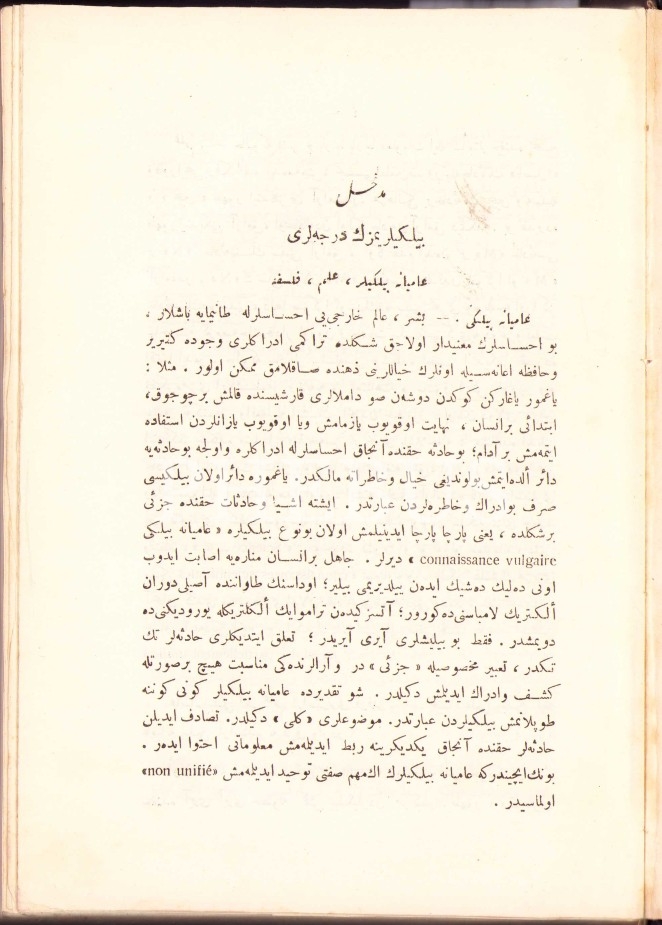 مدخل
بيلكيلريمزك درجه‌لرى
عاميانه بيلكيلر ، علم ، فلسفه
عاميانه بيلكى . -- بشر ، عالم خارجى‌يى احساسلرله طانيمايه باشلار ،
بو احساسلرك معنيدار اولاجق شكلده تراكمى ادراكلرى وجوده كتيرير
وحافظه اعانه‌سيله اونلرك خياللرينى ذهنده صاقلامق ممكن اولور . مثلا :
ياغمور ياغاركن كوكدن دوشه‌ن صو داملالرى قارشيسنده قالمش برچوجوق،
ابتدائى برانسان ، نهايت اوقويوب يازمامش ويا اوقويوب يازانلردن استفاده
ايتمه‌مش بر آدام؛ بوحادثه حقنده آنجاق احساسلرله ادراكلره واولجه بوحادثه‌يه
دائر ألده‌ايتمش‌بولونديغى خيال وخاطراته مالكدر. ياغموره دائراولان بيلكيسى
صرف بوادراك وخاطره‌لردن عبارتدر . ايشته اشيا وحادثات حقنده جزئى
برشكلده ، يعنى پارچا پارچا ايدينيلمش اولان بونوع بيلكيلره « عاميانه بيلكى
connaissance vulgaire » ديرلر . جاهل برانسان مناره‌يه اصابت ايدوب
اونى ده‌ليك ده‌شيك ايده‌ن ييلديريمى بيلير؛ اوداسنك طاواننده آصيلى‌دوران
ألكتريك لامباسنى‌ده‌كورور؛ آتسزكيده‌ن تراموايك ألكتريكله يوروديكنى‌ده
دويمشدر . فقط بو بيليشلرى آيرى آيريدر ؛ تعلق ايتديكلرى حادثه‌لر تك
تكدر ، تعبير مخصوصيله « جزئى » در و آرالرنده‌كى مناسبت هيچ برصورتله
كشف وادراك ايديلمش دكيلدر . شو تقديرده عاميانه بيلكيلر كونى كوننه
طوپلانمش بيلكيلردن عبارتدر. موضوعلرى «كلى » دكيلدر. تصادف ايديلن
حادثه‌لر حقنده آنجاق يكديكرينه ربط ايديلمه‌مش معلوماتى احتوا ايده‌ر .
بونك‌ايچيندركه عاميانه بيلكيلرك اك‌مهم صفتى توحيد ايديلمه‌مش «non unifié»
اولماسيدر .